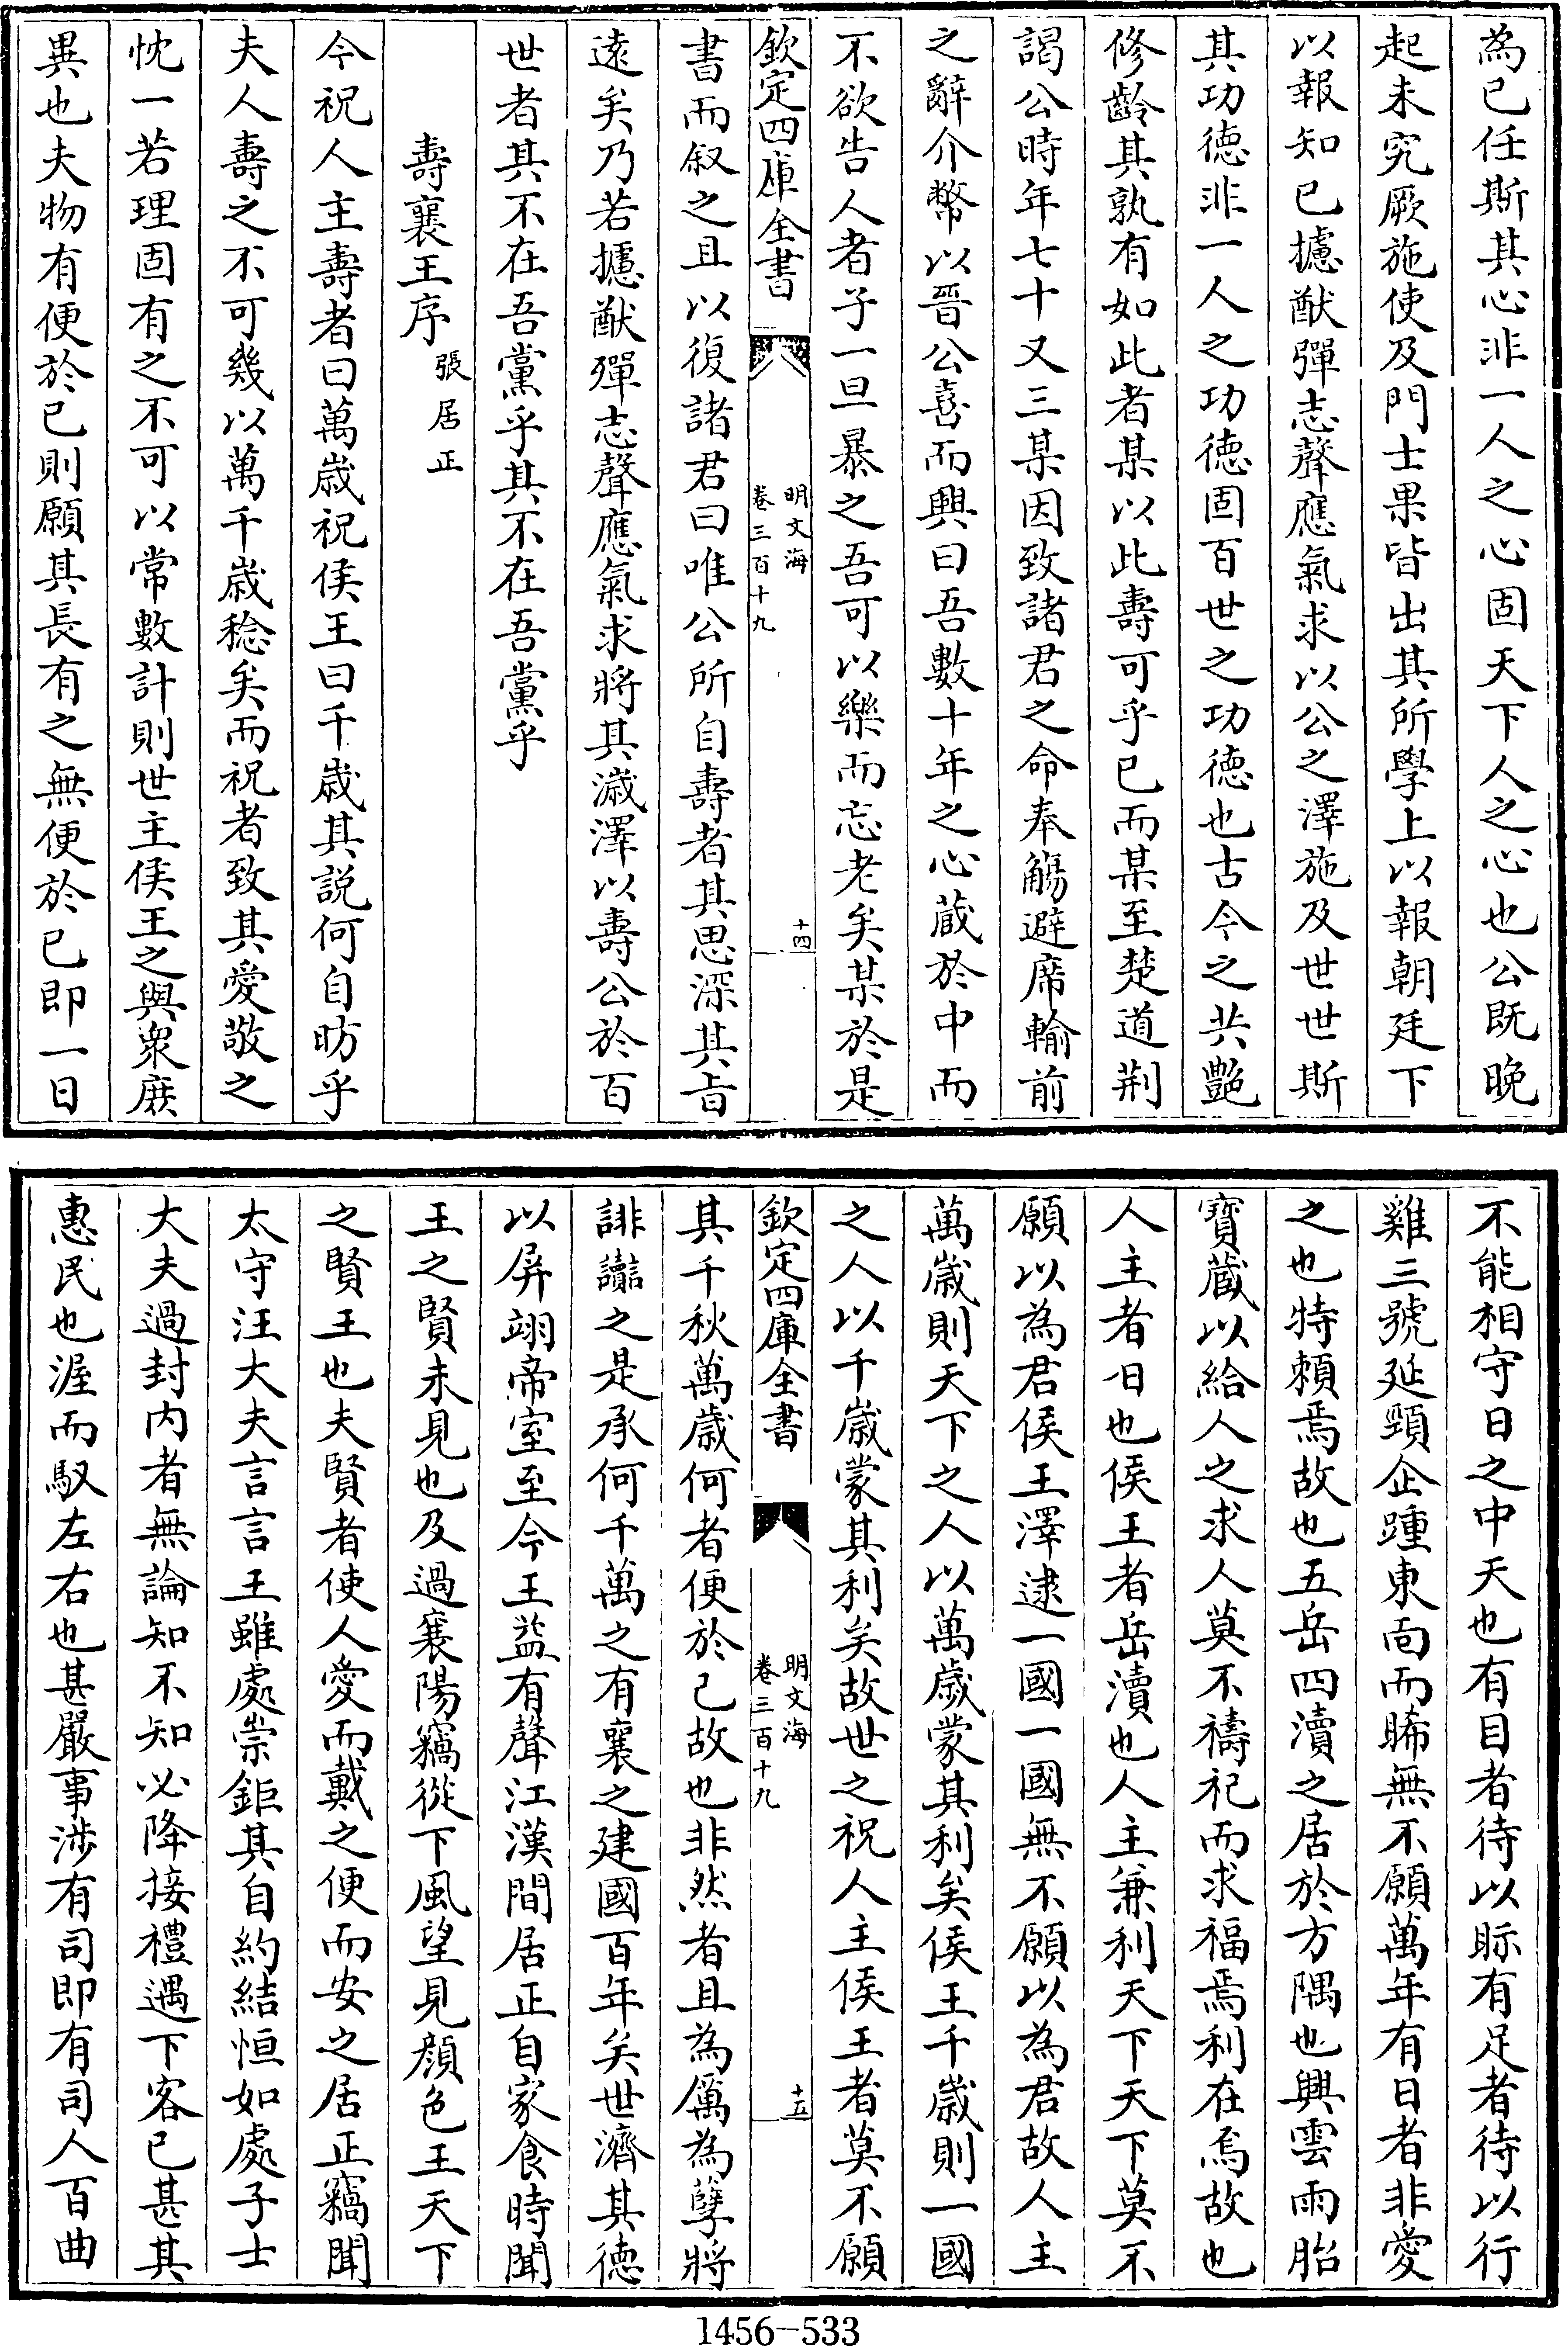 為己任斯其心非一人之心固天下人之心也公既晚
起未究厥施使及門士果皆出其所學上以報朝廷下
以報知己攄猷彈志聲應氣求以公之澤施及世世斯
其功徳非一人之功徳固百世之功徳也古今之共艷
修齡其孰有如此者某以此壽可乎已而某至楚道荆
謁公時年七十又三某因致諸君之命奉觴避席輸前
之辭介幣以晉公喜而興曰吾數十年之心蔵於中而
不欲告人者子一旦暴之吾可以樂而忘老矣某於是
欽定四庫全書
明文海
卷三百十九
十四
書而叙之且以復諸君曰唯公所自壽者其思深其㫖
逺矣乃若攄猷彈志聲應氣求將其濊澤以壽公於百
世者其不在吾黨乎其不在吾黨乎
壽襄王序
張居正
今祝人主壽者曰萬歳祝侯王曰千歳其説何自昉乎
夫人壽之不可幾以萬千歳稔矣而祝者致其愛敬之
忱一若理固有之不可以常數計則世主侯王之與衆庶
異也夫物有便於已則願其長有之無便於已即一日
不能相守日之中天也有目者待以眎有足者待以行
雞三號延頸企踵東向而晞無不願萬年有日者非愛
之也特頼焉故也五岳四瀆之居於方隅也興雲雨胎
寳蔵以給人之求人莫不禱祀而求福焉利在焉故也
人主者日也侯王者岳瀆也人主兼利天下天下莫不
願以為君侯王澤逮一國一國無不願以為君故人主
萬歳則天下之人以萬歳蒙其利矣侯王千歳則一國
之人以千歳蒙其利矣故世之祝人主侯王者莫不願
欽定四庫全書
明文海
卷三百十九
十五
其千秋萬歳何者便於己故也非然者且為厲為孽將
誹讟之是承何千萬之有襄之建國百年矣世濟其徳
以屏翊帝室至今王益有聲江漢間居正自家食時聞
王之賢未見也及過襄陽竊從下風望見顔色王天下
之賢王也夫賢者使人愛而戴之便而安之居正竊聞
太守汪大夫言言王雖處崇鉅其自約結恒如處子士
大夫過封内者無論知不知必降接禮遇下客已甚其
惠民也渥而馭左右也甚嚴事涉有司即有司人百曲
1456-533